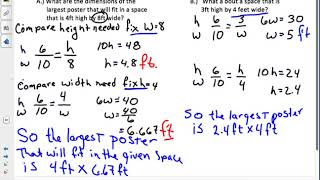 A.) What are the dimensions of the
largest poster that will fit in a space
that is 4ft high by 8ft wide?
Compare height needed fix W=8
h 6/10 = h/8 10h = 48
w h = 4.8 ft.
Compare width need fix h=4
h 6/10 = 4/w 6w = 40
w w = 40/6
= 6.667 ft
So the largest poster
That will fit in the given space
is 4ft x 6.67ft
B.) What a bout a space that is
3ft high by 4 feet wide?
h 6/10 = 3/w 6w = 30
w w = 5 ft
h 6/10 = h/4 10h = 24
w h = 2.4
So the largest poster
is 2.4ft x 4ft